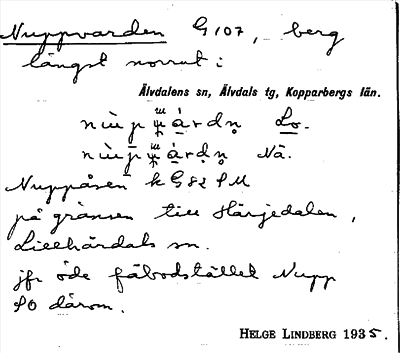 Nuppvarden G 107, berg
längst norrut:
Älvdalens sn, Älvdals tg, Kopparbergs län.
Lo.
Nä.
Nuppåsen k G 82 SM
på gränsen till Härjedalen,
Lillhärdals sn.
jfr öde fäbodstället Nupp
SO därom.
HELGE LINDBERG 1935.